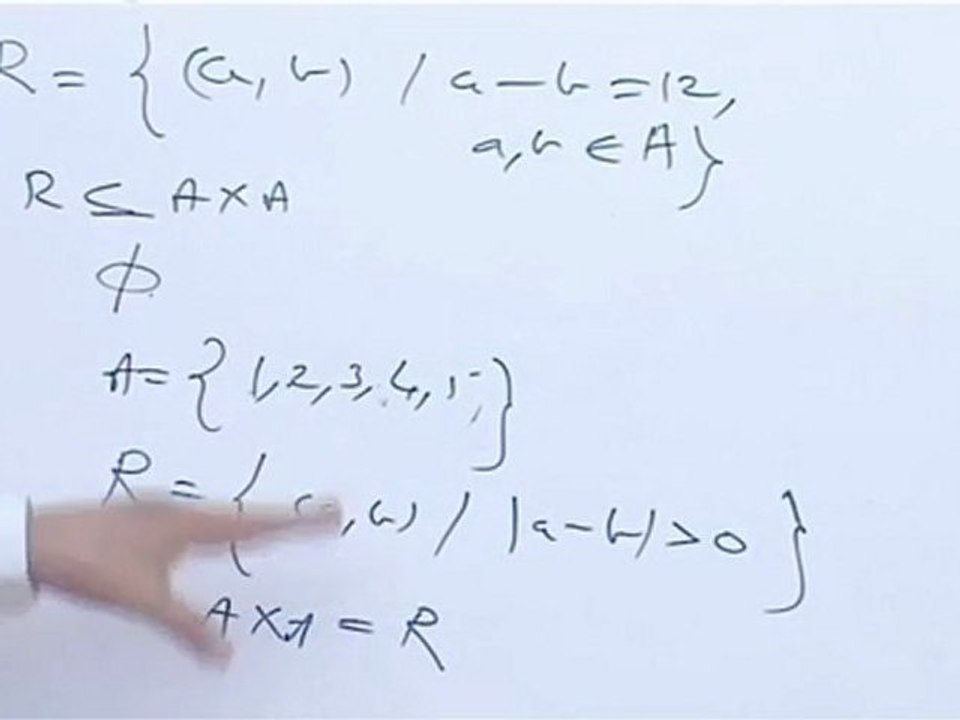 R = { (a, b) / a - b = 12,
a, b ∈ A }
R ⊆ A × A
ϕ
A = { 1, 2, 3, 4, 5, }
R = { (a, b) / |a - b| > 0 }
A × A = R